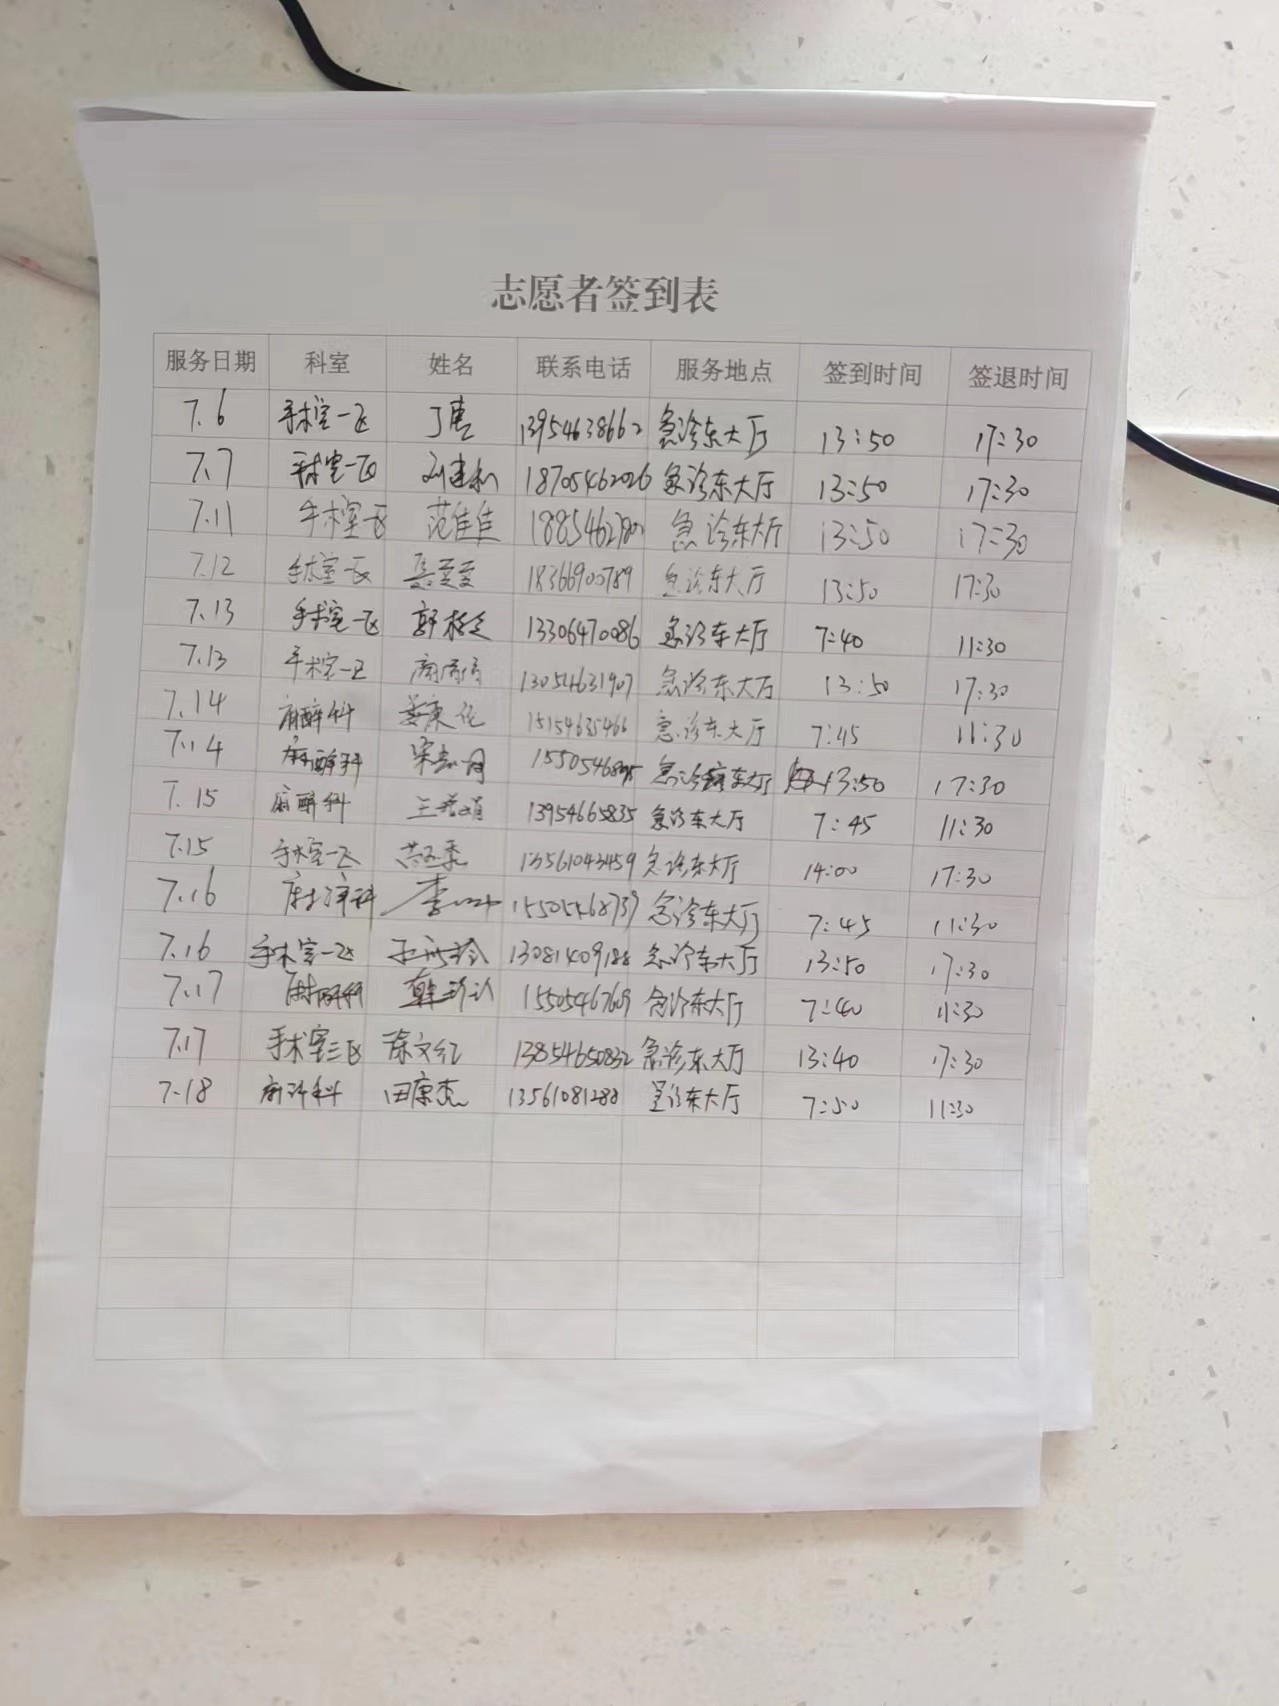 志愿者签到表
服务日期 科室 姓名 联系电话 服务地点 签到时间 签退时间
7.6 手术室一区 13954638662 急诊东大厅 13:50 17:30
7.7 手术室一区 刘建和 18705462026 急诊东大厅 13:50 17:30
7.11 手术室一区 范佳佳 急诊东大厅 13:50 17:30
7.12 手术室一区 18366900789 急诊东大厅 13:50 17:30
7.13 手术室一区 13306470086 急诊东大厅 7:40 11:30
7.13 手术室一区 13054631907 急诊东大厅 13:50 17:30
7.14 麻醉科 15154635466 急诊东大厅 7:45 11:30
7.14 麻醉科 急诊东大厅 13:50 17:30
7.15 麻醉科 13954665835 急诊东大厅 7:45 11:30
7.15 手术室一区 13561043459 急诊东大厅 14:00 17:30
7.16 麻醉科 15505468739 急诊东大厅 7:45 11:30
7.16 手术室一区 13081409188 急诊东大厅 13:50 17:30
7.17 麻醉科 急诊东大厅 7:40 11:30
7.17 手术室三区 徐文红 13854650832 急诊东大厅 13:40 17:30
7.18 麻醉科 田康杰 13561081288 急诊东大厅 7:50 11:30